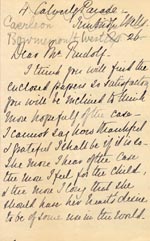 4 Calverley Parade -
Tunbridge Wells
26
Dear Mr Rudolf.
I think you will find the
enclosed papers so satisfactory
you will be inclined to think
more hopefully of the case
I cannot say how thankful
& grateful I shall be if it is so -
The more I hear of the case
the more I feel for the child,
& the more I long that she
should have her heart's desire
to be of some use in the world.